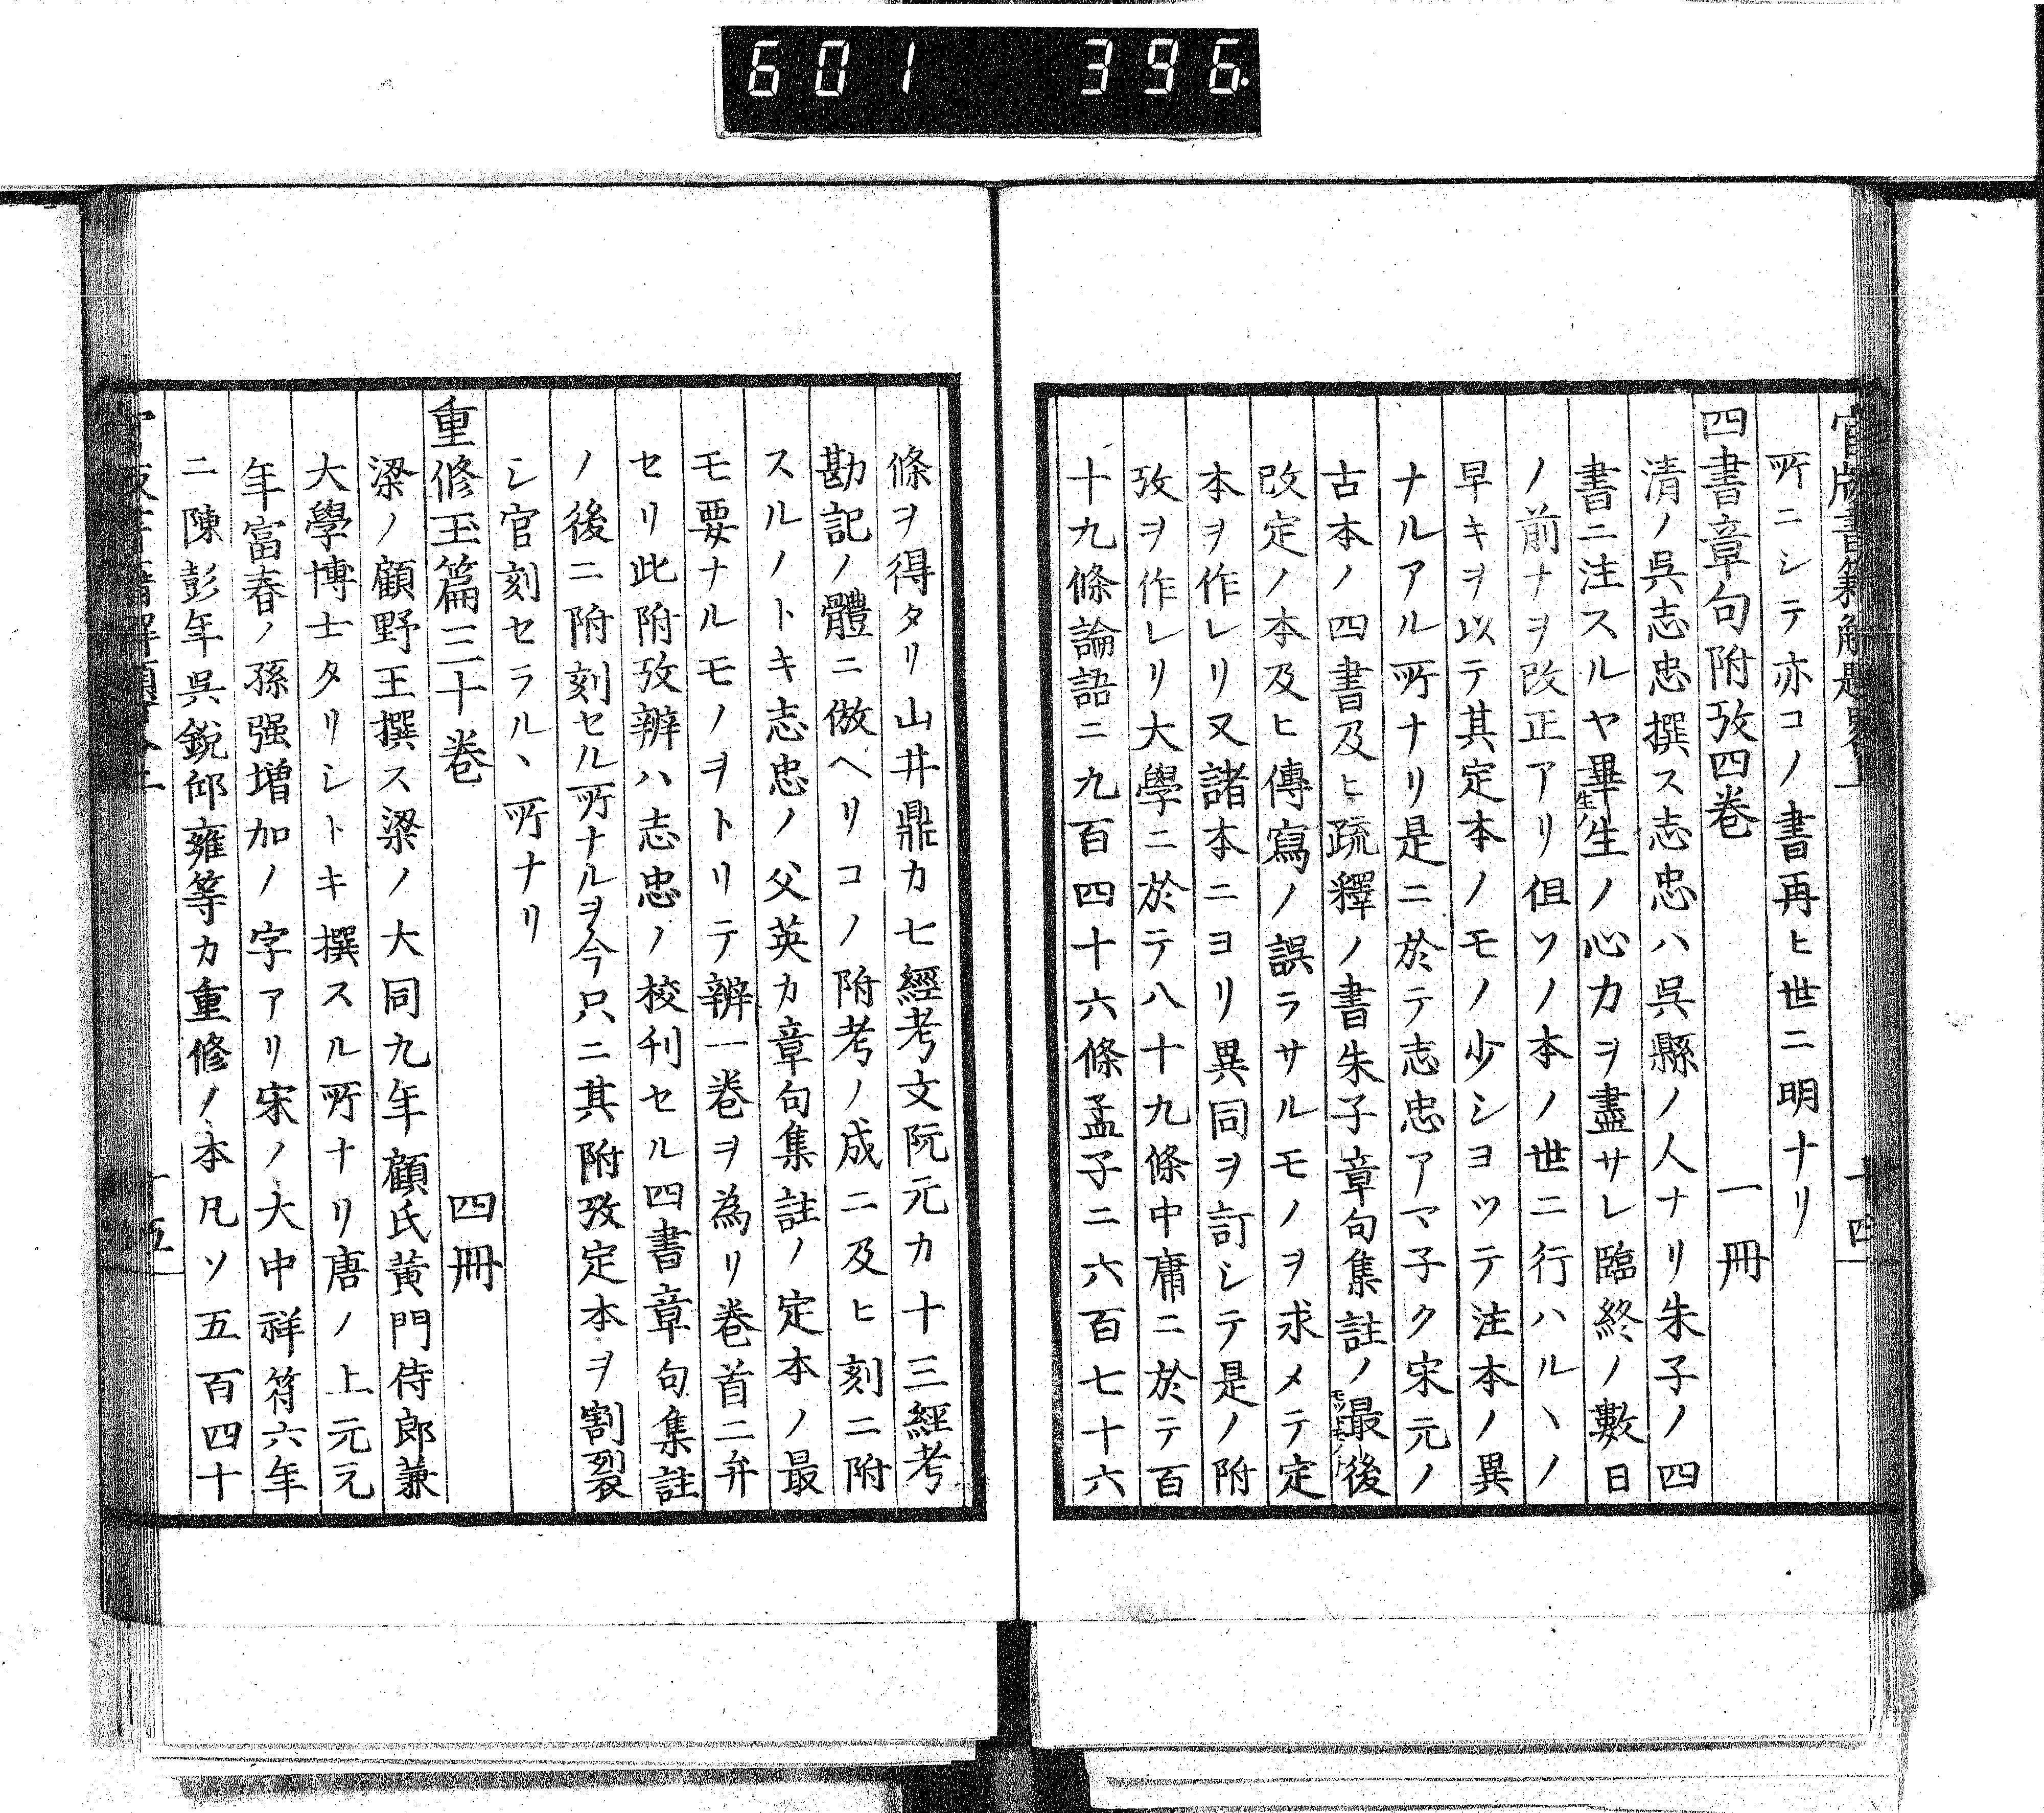 601 396.
官版書籍解題畧上 十四
所ニシテ亦コノ書再ヒ世ニ明ナリ
四書章句附攷四巻 一冊
清ノ呉志忠撰ス志忠ハ呉縣ノ人ナリ朱子ノ四
書ニ注スルヤ畢生ノ心力ヲ盡サレ臨終ノ數日
ノ前ナヲ改正アリ伹ソノ本ノ世ニ行ハルヽノ
早キヲ以テ其定本ノモノ少シヨツテ注本ノ異
ナルアル所ナリ是ニ於テ志忠アマ子ク宋元ノ
古本ノ四書及ヒ疏釋ノ書朱子章句集註ノ最後
改定ノ本及ヒ傳寫ノ誤ラサルモノヲ求メテ定
本ヲ作レリ又諸本ニヨリ異同ヲ訂シテ是ノ附
攷ヲ作レリ大學ニ於テ八十九條中庸ニ於テ百
十九條論語ニ九百四十六條孟子ニ六百七十六
條ヲ得タリ山井鼎カ七經考文阮元カ十三經考
勘記ノ體ニ倣ヘリコノ附考ノ成ニ及ヒ刻ニ附
スルノトキ志忠ノ父英カ章句集註ノ定本ノ最
モ要ナルモノヲトリテ辨一巻ヲ為リ巻首ニ弁
セリ此附攷辨ハ志忠ノ校刋セル四書章句集註
ノ後ニ附刻セル所ナルヲ今只ニ其附攷定本ヲ割裂
シ官刻セラルヽ所ナリ
重修玉篇三十巻 四冊
梁ノ顧野王撰ス梁ノ大同九年顧氏黄門侍郎兼
大學博士タリシトキ撰スル所ナリ唐ノ上元元
年富春ノ孫强増加ノ字アリ宋ノ大中祥符六年
ニ陳彭年呉鋭邱雍等カ重修ノ本凡ソ五百四十
十五